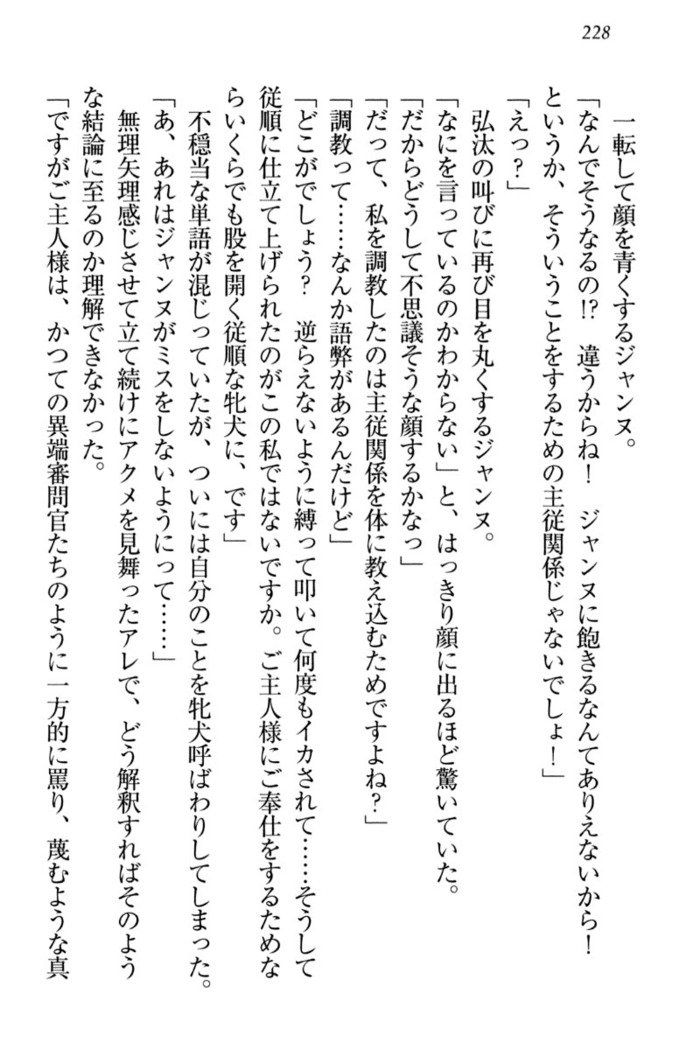 228
一転して顔を青くするジャンヌ。
「なんでそうなるの!? 違うからね! ジャンヌに飽きるなんてありえないから!
というか、そういうことをするための主従関係じゃないでしょ!」
「えっ?」
弘汰の叫びに再び目を丸くするジャンヌ。
「なにを言っているのかわからない」と、はっきり顔に出るほど驚いていた。
「だからどうして不思議そうな顔するかなっ」
「だって、私を調教したのは主従関係を体に教え込むためですよね?」
「調教って……なんか語弊があるんだけど」
「どこがでしょう? 逆らえないように縛って叩いて何度もイカされて……そうして
従順に仕立て上げられたのがこの私ではないですか。ご主人様にご奉仕をするためな
らいくらでも股を開く従順な牝犬に、です」
不穏当な単語が混じっていたが、ついには自分のことを牝犬呼ばわりしてしまった。
「あ、あれはジャンヌがミスをしないようにって……」
無理矢理感じさせて立て続けにアクメを見舞ったアレで、どう解釈すればそのよう
な結論に至るのか理解できなかった。
「ですがご主人様は、かつての異端審問官たちのように一方的に罵り、蔑むような真